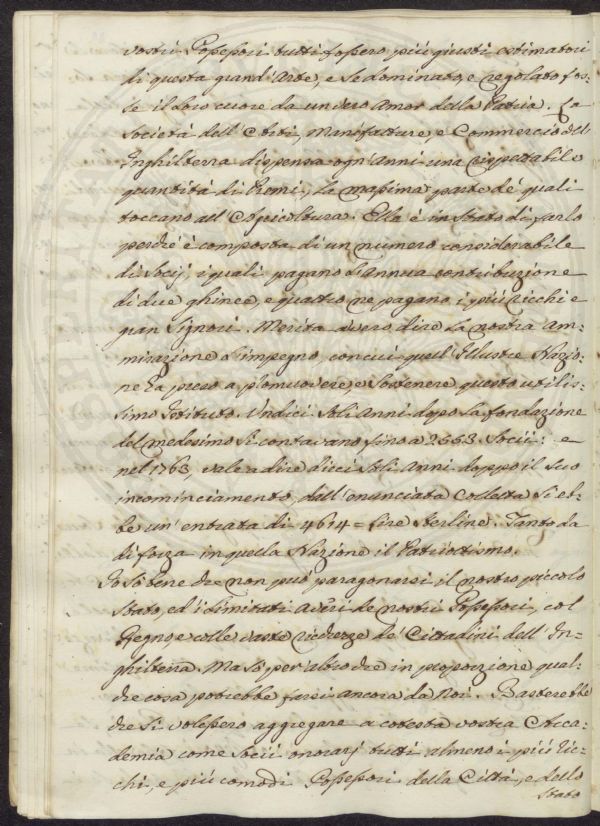 vostri Possessori tutti fossero più giusti estimatori
di questa grand'Arte, e se dominato, e regolato fos-
se il loro cuore da un vero Amor della Patria. La
Società dell'Arti, Manifatture, e Commercio dell'
Inghilterra dispensa ogn'anni una rispettabile
quantità di Premi, la massima parte de quali
toccano all'Agricoltura. Ella è in stato di farlo
perché è composta di un numero considerabile
di Socij, i quali pagano l'annua contribuzione
di due ghinee, e quattro ne pagano i più ricchi e
gran Signori. Merita a vero dire la nostra am-
mirazione l'impegno, con cui quell'Illustre Nazio-
ne ha preso a plomuovere, e sostenere questo utilis-
simo Istituto. Undici soli Anni dopo la fondazione
del medesimo si contavano fino a 2553. Socii: e
nel 1763, vale a dire dieci soli Anni doppo il suo
incominciamento, dall'enunciata Colletta si eb-
be un'entrata di 4614= Lire Sterline. Tanto dà
di forza in quella Nazione il Patriottismo.
Io so bene che non può paragonarsi il nostro piccolo
Stato, ed i limitati averi de nostri Possessori, col
Regno e colle vaste richezze de' Cittadini dell'In-
ghilterra. Ma so per altro che in proporzione qual-
che cosa potrebbe farsi ancora da Noi. Basterebbe
che si volessero aggregare a cotesta vostra Acca-
demia come Socii onorarj tutti almeno i più ric-
chi, e più comodi Possessori della Città, e dello
Stato